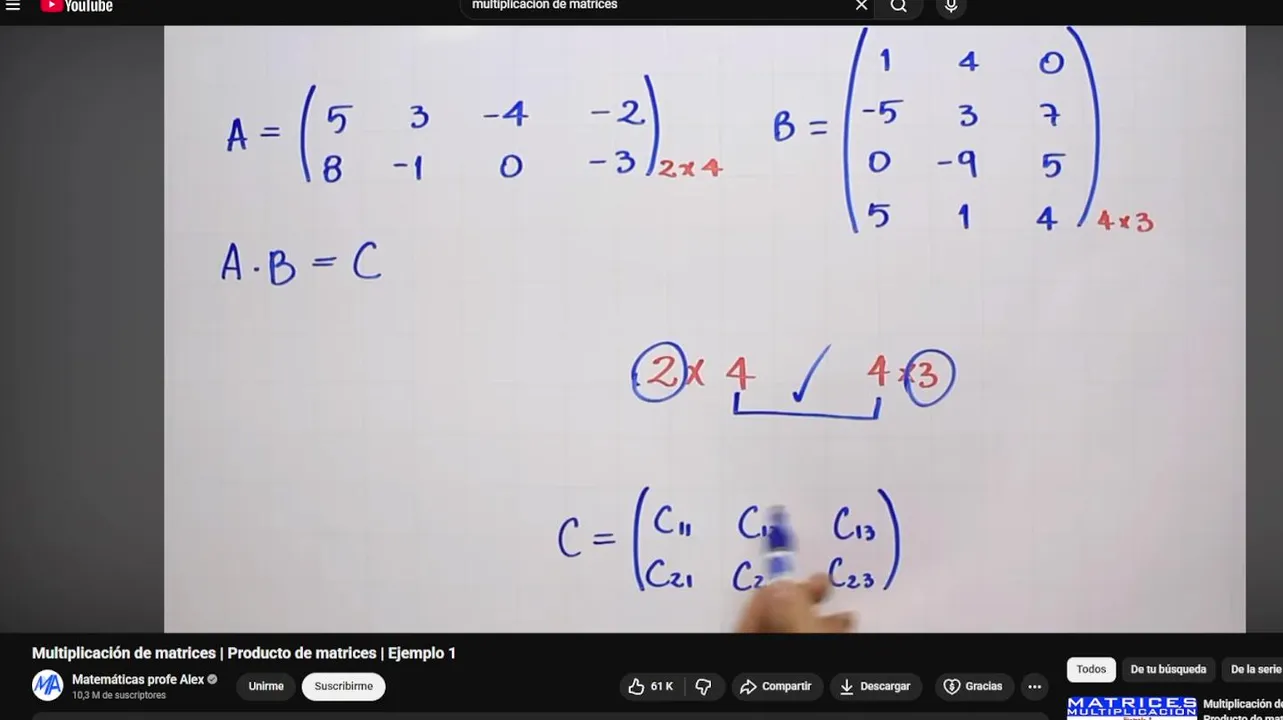 YouTube
multiplicacion de matrices
A = ( 5 3 -4 -2
8 -1 0 -3 ) 2x4
B = ( 1 4 0
-5 3 7
0 -9 5
5 1 4 ) 4x3
A·B = C
2 x 4 ✓ 4 x 3
C = ( C11 C13
C21 C23 )
Multiplicación de matrices | Producto de matrices | Ejemplo 1
Matemáticas profe Alex
10,3 M de suscriptores
Unirme
Suscribirme
61 K
Compartir
Descargar
Gracias
Todos
De tu búsqueda
De la serie
MATRICES
MULTIPLICACIÓN
Multiplicación d
Producto de m